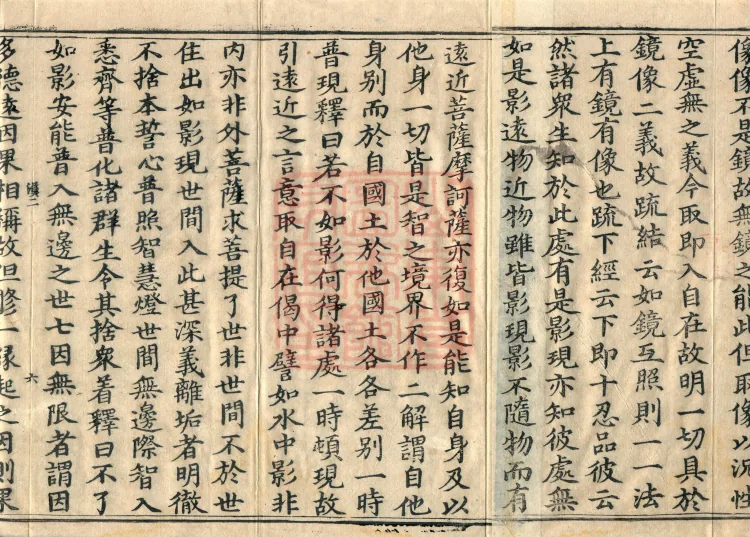 像像不是鏡故無鏡之能此但取像以況性
空虛無之義今取即入自在故明一切具於
鏡像二義故疏結云如鏡互照則一一法
上有鏡有像也疏下經云下即十忍品彼云
然諸衆生知於此處有是影現亦知彼處無
如是影遠物近物雖皆影現影不隨物而有
遠近菩薩摩訶薩亦復如是能知自身及以
他身一切皆是智之境界不作二解謂自他
身別而於自國土於他國土各各差別一時
普現釋曰若不如影何得諸處一時頓現故
引遠近之言意取自在偈中譬如水中影非
內亦非外菩薩求菩提了世非世間不於世
住出如影現世間入此甚深義離垢者明徹
不捨本誓心普照智慧燈世間無邊際智入
悉齊等普化諸群生令其捨衆着釋曰不了
如影安能普入無邊之世七因無限者謂因
六
多德遠因果相稱故但修一緣起之因則果